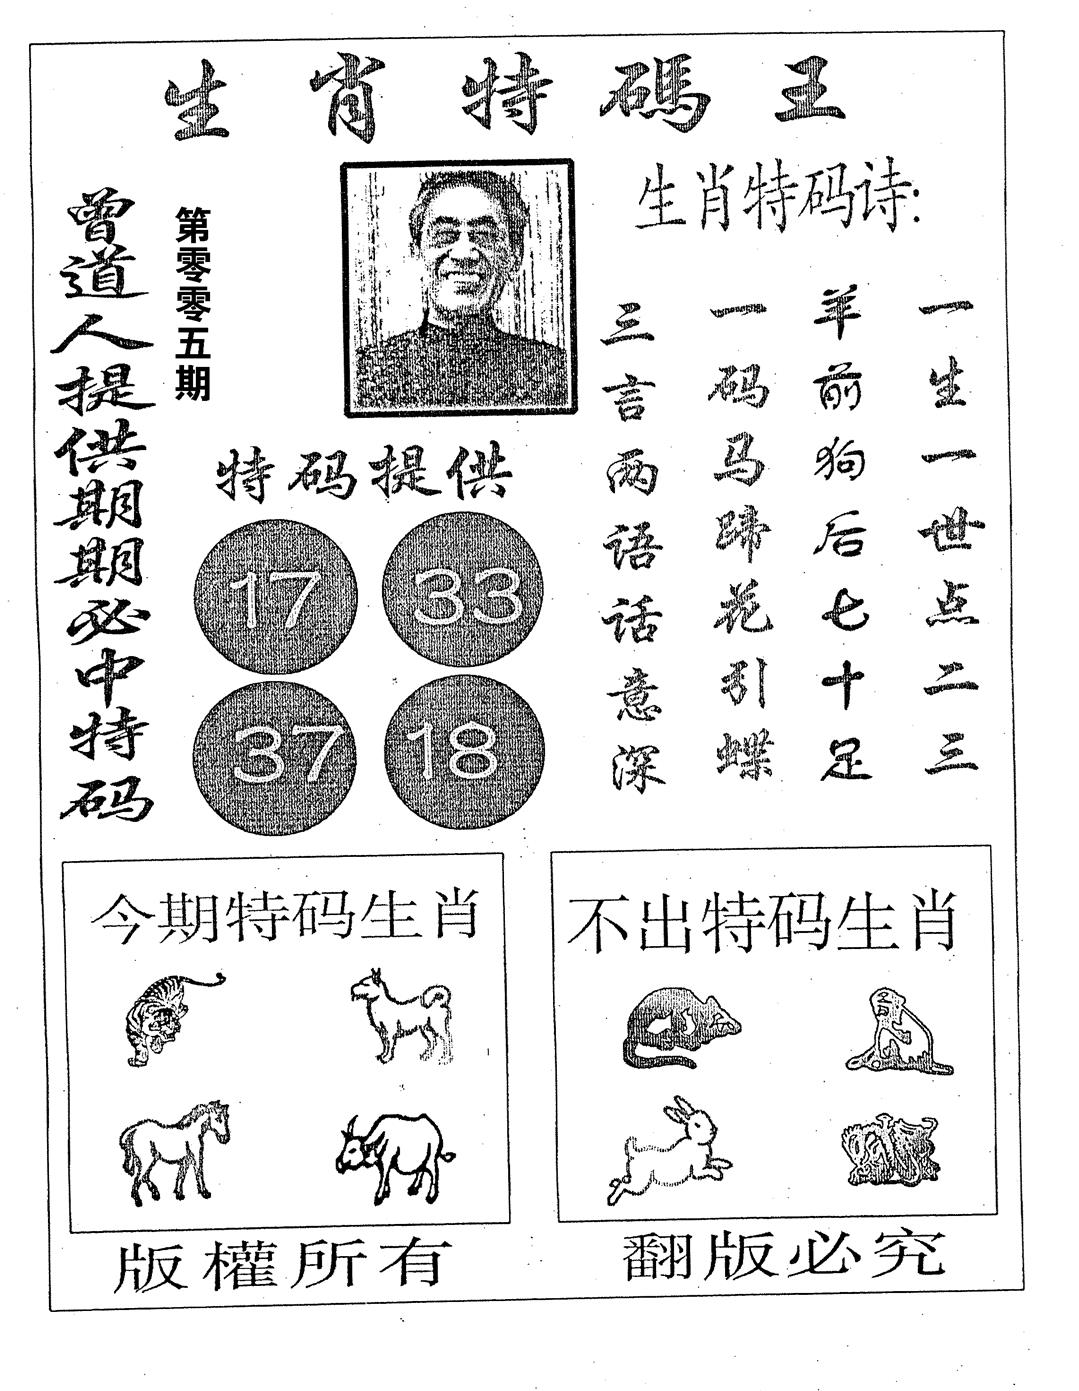 生肖特碼王
曾道人提供期期必中特码
第零零五期
生肖特码诗:
一生一世点二三
羊前狗后七十足
一码马蹄花引蝶
三言两语话意深
特码提供
17 33
37 18
今期特码生肖
不出特码生肖
版權所有
翻版必究